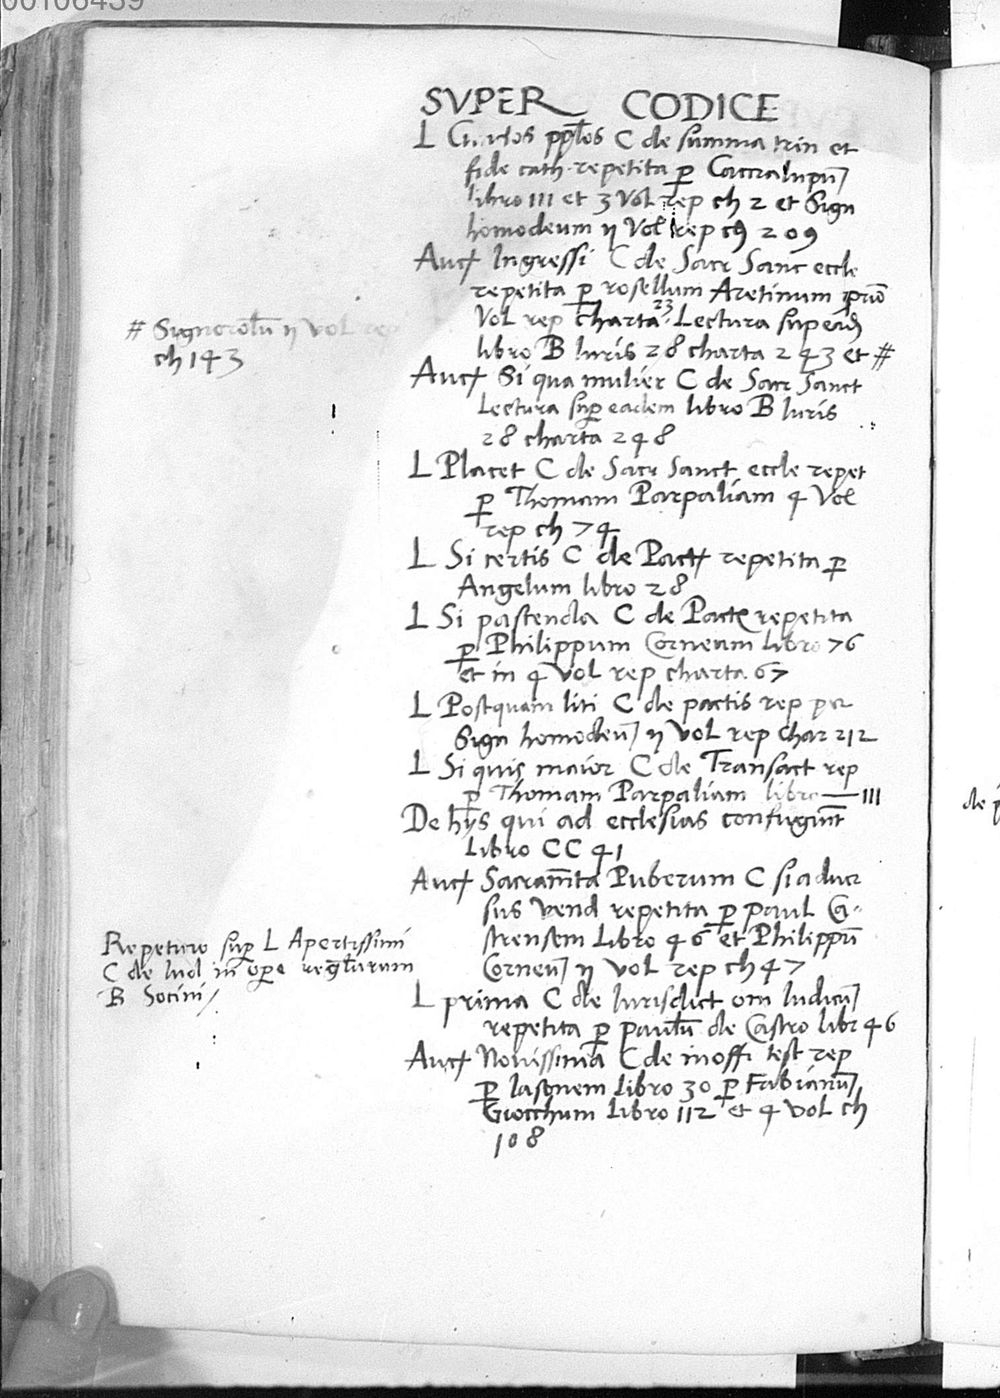 00106439
SVPER CODICE
L Cunctos pp̄los C de summa trin et
fide cath repetita ꝑ Caccialupū
libro 111 et 3 Vol rep ch 2 et Sign
homodeum ij Vol rep ch 209
Auct Ingressi C de Sacr Sanc eccle
repetita ꝑ rosellum Aretinum primo
Vol rep charta 23. Lectura sup ead
libro B Iuris 28 charta 243 et #
# Signorolū ij vol rep
ch 143
Auct Si qua mulier C de Sacr Sanct
Lectura sup eadem libro B Iuris
28 charta 248
L Placet C de Sacr Sanct eccle repet
ꝑ Thomam Parpaliam 4 Vol
rep ch 74
L Si certis C de Pact repetita ꝑ
Angelum libro 28
L Si pascenda C de Pact repetita
ꝑ Philippum Corneum Libro 76
et in 4 Vol rep charta 67
L Postquam liti C de pactis rep per
Sign homodeū ij Vol rep Char 212
L Si quis maior C de Transact rep
ꝑ Thomam Parpaliam libro — 111
De hijs qui ad ecclesias confugiūt
Libro CC 41
Auct Sacram̄ta Puberum C si aduer
sus vend repetita ꝑ paul Ca-
strensem Libro 46 et Philippū
Corneū ij vol rep ch 47
Repetitio sup L Apertissimi
C de Iud in ope regularum
B Socini
L prima C de Iurisdict om Iudicū
repetita ꝑ paulū de Castro libr 46
Auct Novissima C de inoffi test rep
ꝑ Iasonem Libro 30 ꝑ Fabianū
Giocchum Libro 112 et 4 vol ch
108
de